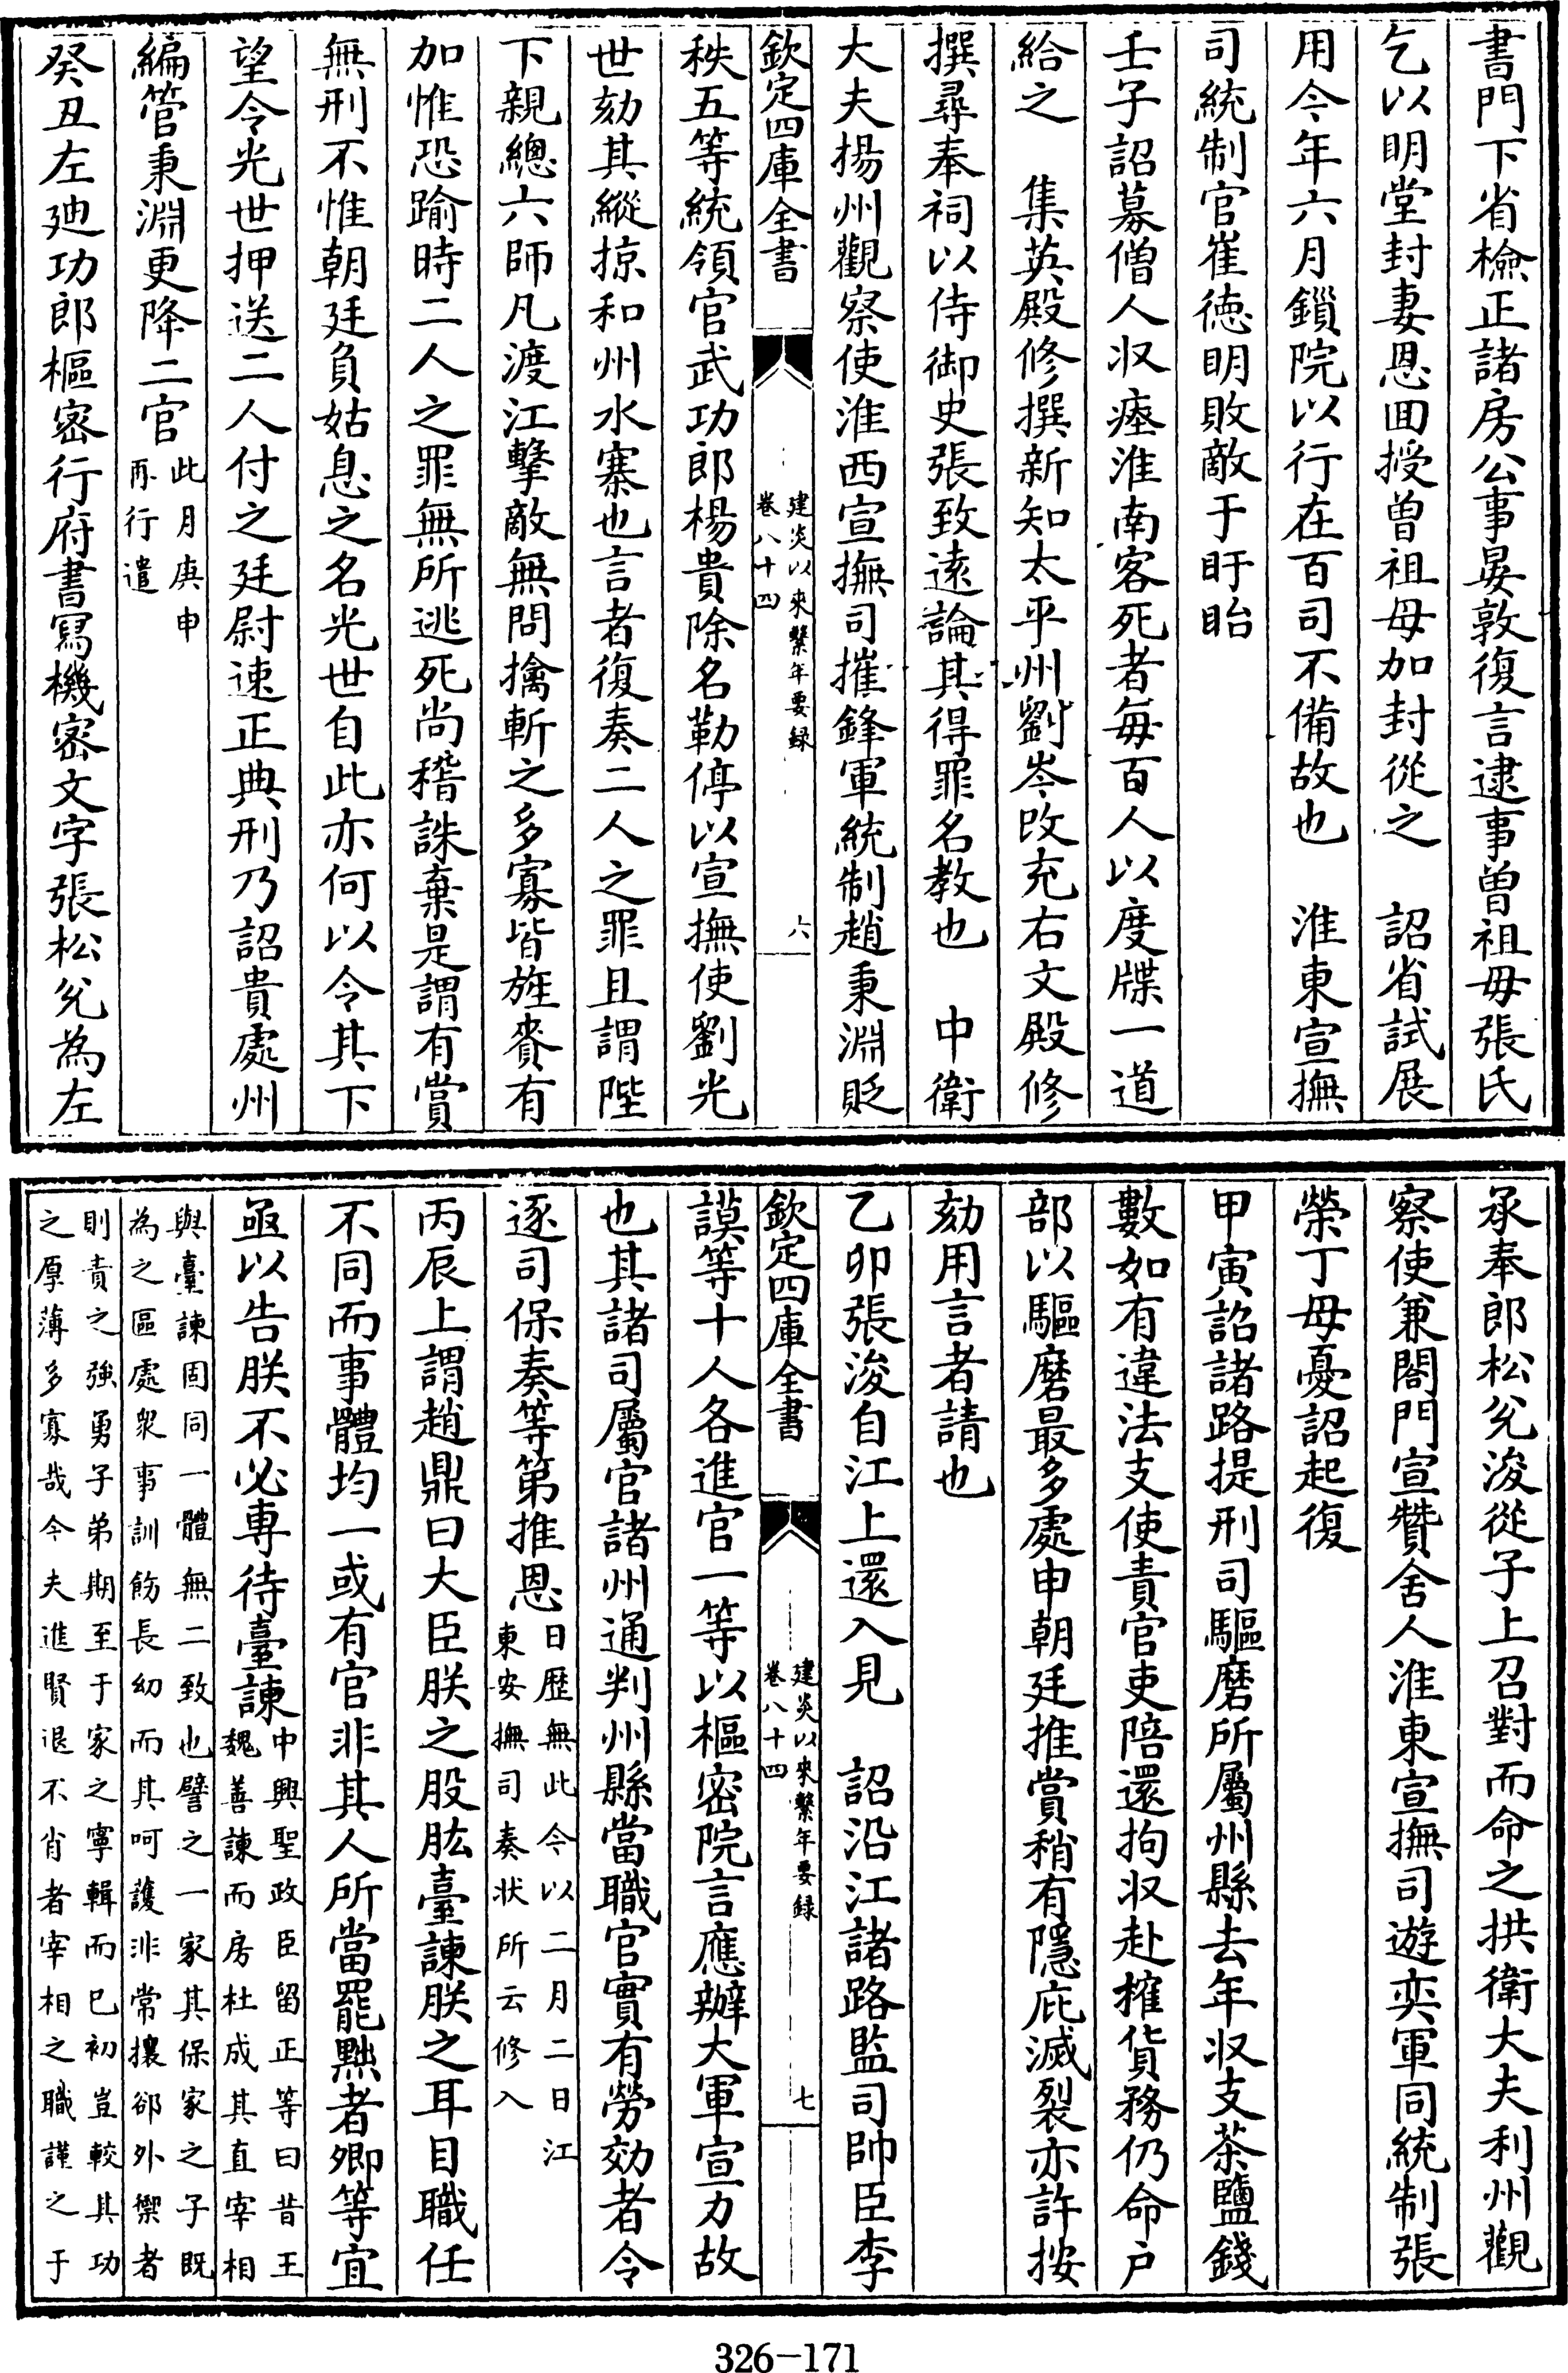 書門下省檢正諸房公事晏敦復言逮事曾祖母張氏
乞以明堂封妻恩回授曾祖母加封從之　詔省試展
用今年六月鎖院以行在百司不備故也　淮東宣撫
司統制官崔徳明敗敵于盱眙
壬子詔募僧人収瘞淮南客死者每百人以度牒一道
給之　集英殿修撰新知太平州劉岑改充右文殿修
撰尋奉祠以侍御史張致遠論其得罪名教也　中衛
大夫揚州觀察使淮西宣撫司摧鋒軍統制趙秉淵貶
欽定四庫全書
建炎以來繫年要録
卷八十四
六
秩五等統領官武功郎楊貴除名勒停以宣撫使劉光
世劾其縱掠和州水寨也言者復奏二人之罪且謂陛
下親總六師凡渡江擊敵無問擒斬之多寡皆旌賚有
加惟恐踰時二人之罪無所逃死尚稽誅棄是謂有賞
無刑不惟朝廷負姑息之名光世自此亦何以令其下
望令光世押送二人付之廷尉速正典刑乃詔貴處州
編管秉淵更降二官
此月庚申
再行遣
癸丑左廸功郎樞密行府書寫機密文字張松兊為左
承奉郎松兊浚從子上召對而命之拱衛大夫利州觀
察使兼閤門宣贊舍人淮東宣撫司遊奕軍同統制張
榮丁母憂詔起復
甲寅詔諸路提刑司驅磨所屬州縣去年収支茶鹽錢
數如有違法支使責官吏陪還拘収赴榷貨務仍命戶
部以驅磨最多處申朝廷推賞稍有隱庇滅裂亦許按
劾用言者請也
乙卯張浚自江上還入見　詔沿江諸路監司帥臣李
欽定四庫全書
建炎以來繫年要録
卷八十四
七
謨等十人各進官一等以樞密院言應辦大軍宣力故
也其諸司屬官諸州通判州縣當職官實有勞効者令
逐司保奏等第推恩
日歷無此今以二月二日江
東安撫司奏狀所云修入
丙辰上謂趙鼎曰大臣朕之股肱臺諫朕之耳目職任
不同而事體均一或有官非其人所當罷黜者卿等宜
亟以告朕不必専待臺諫
中興聖政臣留正等曰昔王
魏善諫而房杜成其直宰相
與臺諫固同一體無二致也譬之一家其保家之子既
為之區處衆事訓飭長幼而其呵護非常攘郤外禦者
則責之強勇子弟期至于家之寧輯而已初豈較其功
之厚薄多寡哉今夫進賢退不肖者宰相之職謹之于
326-171